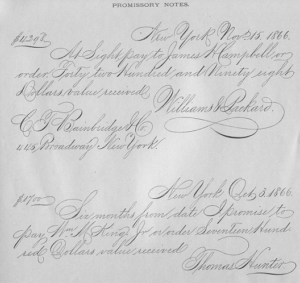 PROMISSORY NOTES.
$4298. New York Nov. 15. 1866.
At Sight pay to James H Campbell or
order, Forty two Hundred and Ninety eight
Dollars, value received.
Williams & Packard.
C. F. Bainbridge & Co.
445, Broadway New York.
New York Oct 3. 1866.
$1700
Six months from date I promise to
pay Wm. M. King Jr. or order Seventeen Hund
red Dollars, value received
Thomas Hunter.